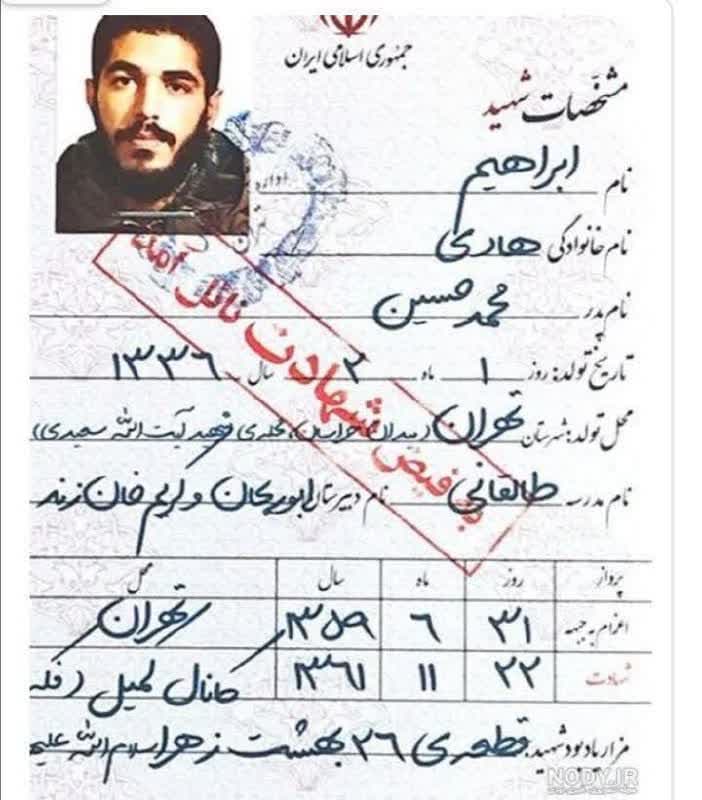 جمهوری اسلامی ایران
مشخّصات شهید
نام ابراهیم
نام خانوادگی هادی
نام پدر محمد حسین
تاریخ تولد: روز ۱ ماه ۲ سال ۱۳۳۶
محل تولد: شهرستان تهران (میدان خراسان، شهید آیت الله سعیدی)
نام مدرسه طالقانی نام دبیرستان ابوریحان و کریم خان زند
به فیض شهادت نائل آمد
پرواز روز ماه سال محل
اعزام به جبهه ۳۱ ۶ ۱۳۵۹ تهران
شهادت ۲۲ ۱۱ ۱۳۶۱ کانال کمیل (فکه
مزار یادبود شهید: قطعه ی ۲۶ بهشت زهرا سلام الله علیه
NODY.IR